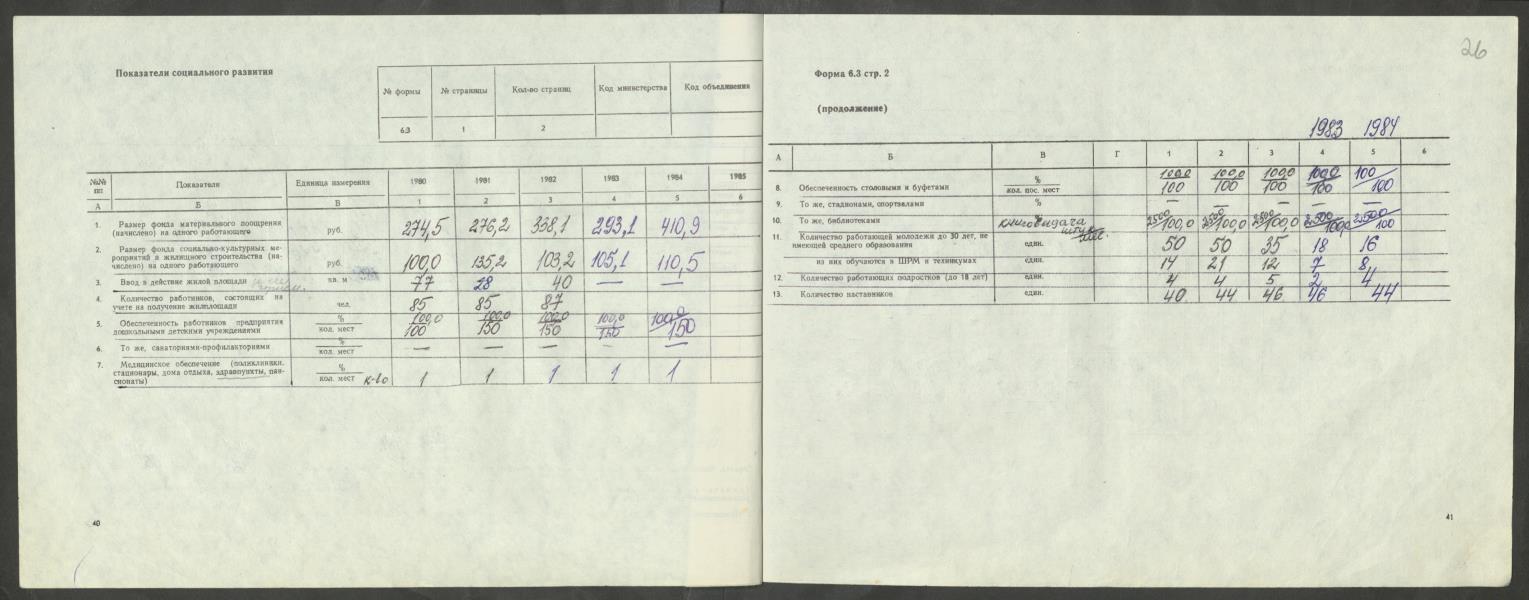 Показатели социального развития
№ формы № страницы Кол-во страниц Код министерства Код объединения
6.3 1 2
№№ пп Показатели Единица измерения 1980 1981 1982 1983 1984 1985
А Б В 1 2 3 4 5 6
1. Размер фонда материального поощрения
(начислено) на одного работающего руб. 274,5 276,2 338,1 293,1 410,9
2. Размер фонда социально-культурных ме-
роприятий и жилищного строительства (на-
числено) на одного работающего руб. 100,0 135,2 103,2 105,1 110,5
3. Ввод в действие жилой площади кв. м 77 28 40 — —
4. Количество работников, состоящих на
учете на получение жилплощади чел. 85 85 87
5. Обеспеченность работников предприятия % 100,0 100,0 100,0 100,0 100,0
дошкольными детскими учреждениями кол. мест 100 150 150 150 150
6. То же, санаториями-профилакториями % — — — — —
кол. мест
7. Медицинское обеспечение (поликлиники, %
стационары, дома отдыха, здравпункты, пан-
сионаты) кол. мест к-во 1 1 1 1 1
40
26
Форма 6.3 стр. 2
(продолжение)
1983 1984
А Б В Г 1 2 3 4 5 6
8. Обеспеченность столовыми и буфетами % 100,0 100,0 100,0 100,0 100
кол. пос. мест 100 100 100 100 100
9. То же, стадионами, спортзалами % — — — — —
10. То же, библиотеками % 2500 2500 2500 2500 2500
книговыдача 100,0 100,0 100,0 100,0 100
штук
11. Количество работающей молодежи до 30 лет, не
имеющей среднего образования един. 50 50 35 18 16
из них обучаются в ШРМ и техникумах един. 14 21 12 7 8
12. Количество работающих подростков (до 18 лет) един. 4 4 5 2 4
13. Количество наставников един. 40 44 46 46 44
41